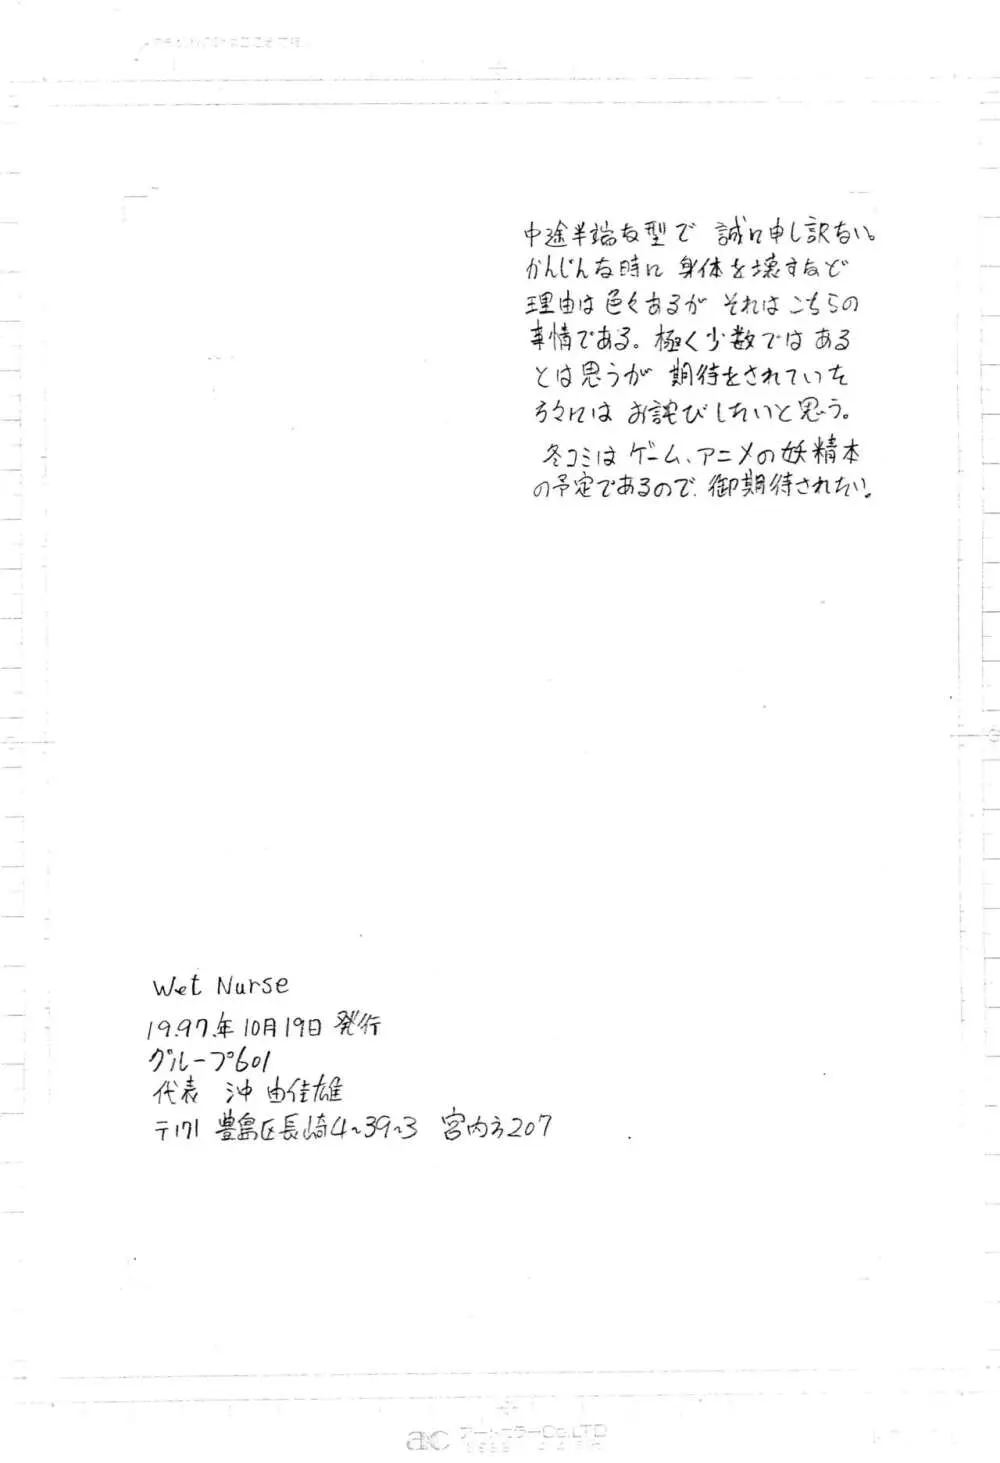 中途半端な型で 誠に申し訳ない。
かんじんな時に 身体を壊すなど
理由は色々あるが それはこちらの
事情である。極く少数ではある
とは思うが 期待をされていた
方々には お詫びしたいと思う。
冬コミは ゲーム、アニメの妖精本
の予定であるので、御期待されたい。
Wet Nurse
1997年10月19日発行
グループ601
代表 沖 由佳雄
〒171 豊島区長崎4~39~3 宮内方207
a&c アートカラーCo.LTD